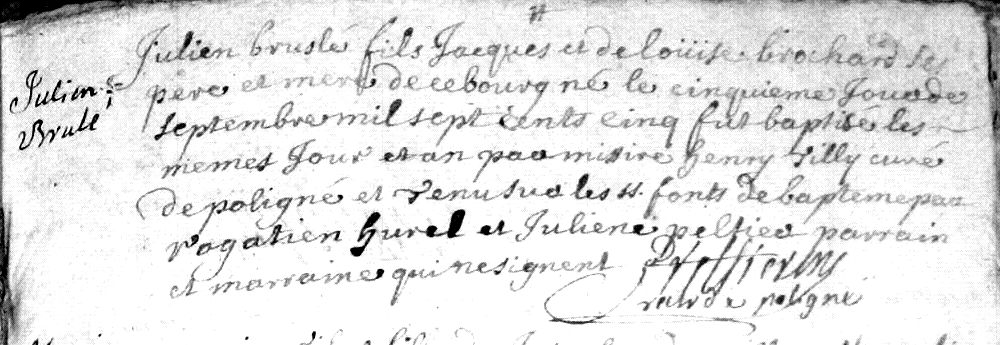 Julien brusle fils Jacques et de loüise brochard ses
Julien
Brulé
père et mere de ce bourg né le cinquieme Jour de
septembre mil sept cents cinq fut baptisé les
memes Jour et an par missire henry tilly curé
de poligné et tenu sur les ss. fonts de bapteme par
rogatien hurel et Juliene peltier parrain
et marraine qui ne signent
de poligné